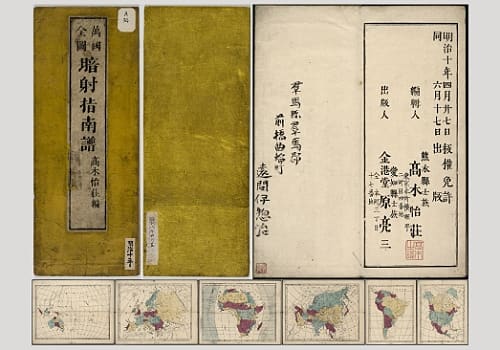 萬國
全圖
暗射指南譜
高木怡荘編
明治十年四月廿七日 版權免許
同 六月十七日 出版
編輯人
熊本縣士族
高木怡荘
出版人
愛知縣士族
金港堂 原亮三
羣馬縣羣馬郡
前橋曲輪町